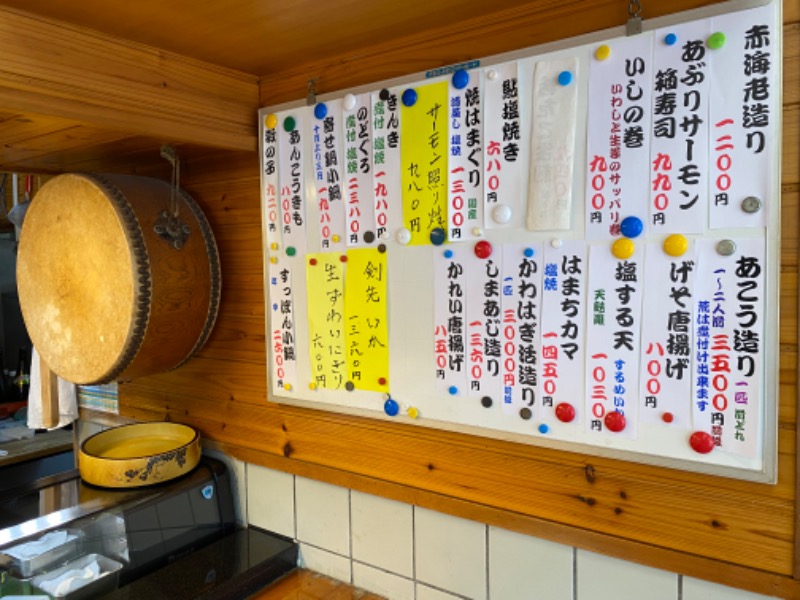 赤海老造り
一二〇〇円
あぶりサーモン
箱寿司
九九〇円
いしの巻
いわしと生姜のサッパリ巻
九〇〇円
貼塩焼き
六八〇円
焼はまぐり
酒蒸し 塩焼
一三〇〇円
国産
サーモン照り焼
九八〇円
きんき
煮付 塩焼
一九八〇円
のどぐろ
煮付 塩焼
二三八〇円
寄せ鍋小鍋
十月より五月
一九八〇円
あんこうきも
八〇〇円
数の子
九二〇円
あこう造り
一匹
一~二人前
三五〇〇円前後
荒は煮付け出来ます
げそ唐揚げ
八〇〇円
塩するめ天
するめいか
一〇三〇円
はまちカマ
塩焼
一四五〇円
かわはぎ活造り
一匹
三〇〇〇円前後
しまあじ造り
一三六〇円
かれい唐揚げ
八五〇円
剣先いか
一三六〇円
生ずわいにぎり
六〇〇円
すっぽん小鍋
二六〇〇円